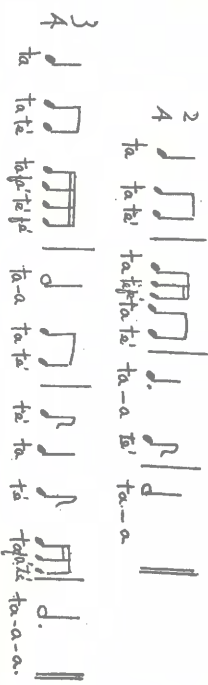 2
4
ta ta té ta téfé ta té ta-a té ta-a
3
4
ta ta té tafa'té'fé ta-a ta té té ta té tafa'té ta-a-a.